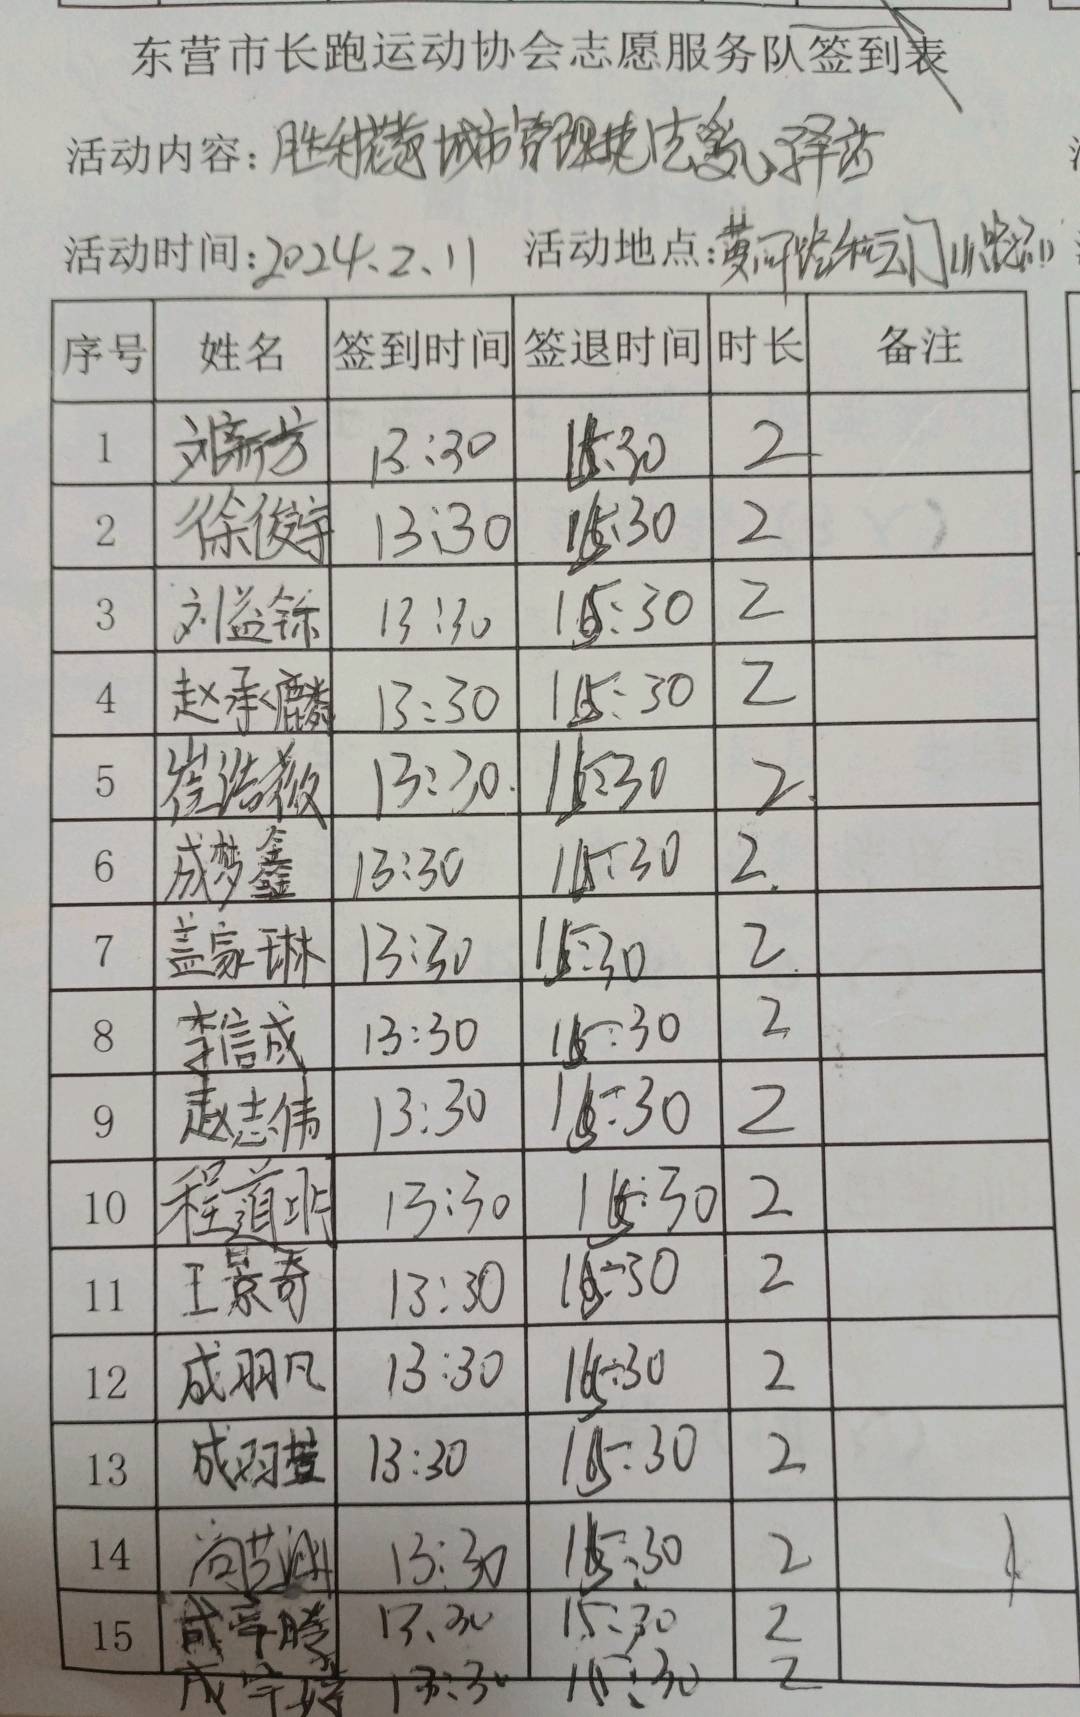 东营市长跑运动协会志愿服务队签到表
活动内容:
活动时间:2024.2.11 活动地点:黄河路
序号 姓名 签到时间 签退时间 时长 备注
1 刘新方 13:30 15:30 2
2 徐俊宇 13:30 15:30 2
3 刘益铄 13:30 15:30 2
4 赵承麟 13:30 15:30 2
5 崔浩 13:30 15:30 2
6 成梦鑫 13:30 15:30 2
7 盖家琳 13:30 15:30 2
8 李信成 13:30 15:30 2
9 赵志伟 13:30 15:30 2
10 程道 13:30 15:30 2
11 王景奇 13:30 15:30 2
12 成羽凡 13:30 15:30 2
13 成羽萱 13:30 15:30 2
14 13:30 15:30 2
15 13:30 15:30 2
成宇 13:30 15:30 2